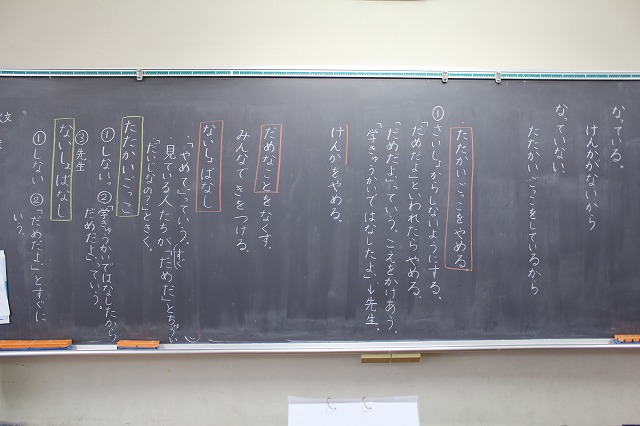 なっている。
けんかがないから
なっていない。
たたかいごっこをしているから
たたかいごっこをやめる
①さいしょからしないようにする。
「だめだよ」といわれたらやめる。
「だめだよ」っていう。こえをかけあう。
「学きゅうかいではなしたよ」→先生
けんかをやめる。
だめなことをなくす。
みんなできをつける。
ないしょばなし
・「やめて」っていう。
・見ている人たちが、「だめだ」とちゅうい
「だいじなの？」ときく。
たたかいごっこ
①しない。②学きゅうかいではなしたから
だめだよ」っていう。
③先生
ないしょばなし
①しない ②「だめだよ」とすぐに
いう。